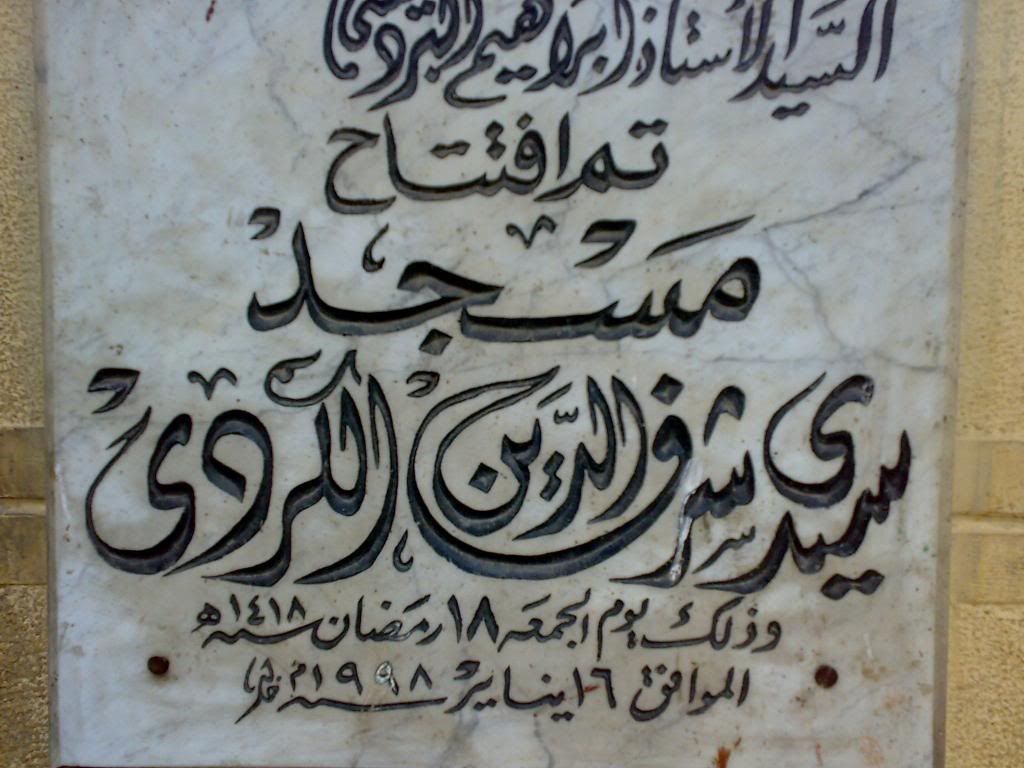 السيد الأستاذ ابراهيم
تم افتتاح
مسجد
سيدى شرف الدين الكردى
وذلك يوم الجمعه ١٨ رمضان سنة ١٤١٨ه
الموافق ١٦ يناير سنة ١٩٩٨م